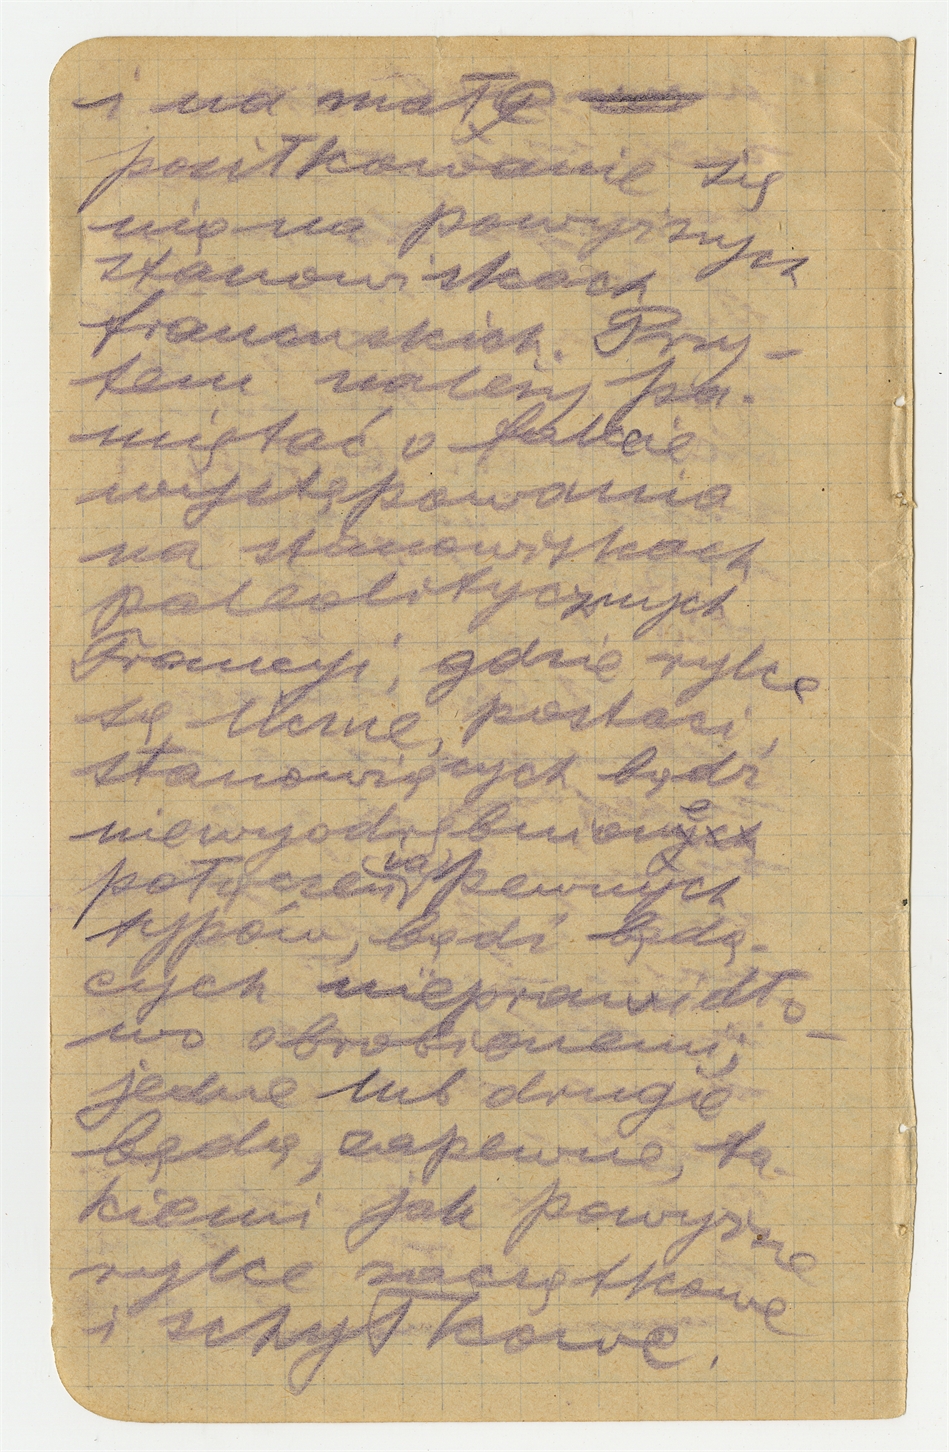 i na małe
posiłkowanie się
nią na powyższych
stanowiskach
francuskich. Przy-
tem należy pa-
miętać o fakcie
występowania
na stanowiskach
paleolitycznych
Francyi, gdzie rylce
są liczne, postaci,
stanowiących bądź
niewyodrębnione
połączenia pewnych
typów, bądź będą-
cych nieprawidło-
wo obrobionemi;
jedne lub drugie
będą, zapewne, ta-
kiemi jak powyższe
rylce zaczątkowe
i schyłkowe.